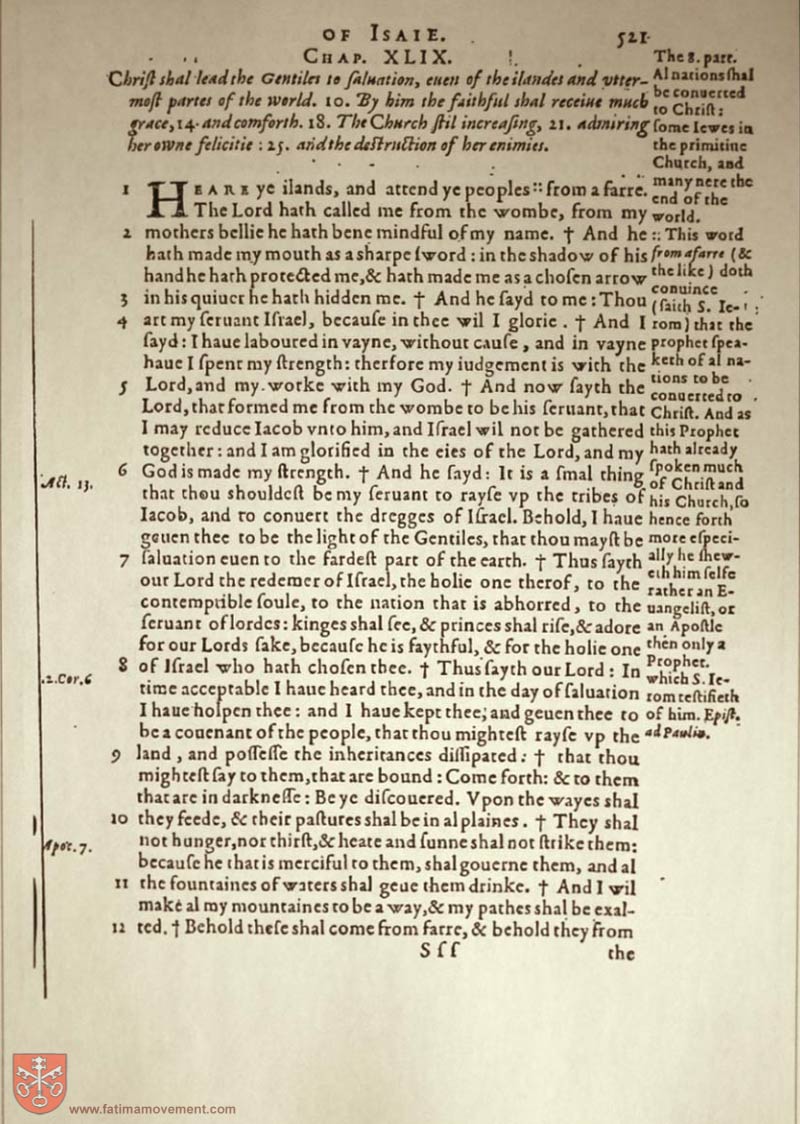 OF ISAIE. 521
CHAP. XLIX.
Chriſt shal lead the Gentiles to ſaluation, euen of the ilandes and vtter-
moſt partes of the world. 10. By him the faithful shal receiue much
grace, 14. and comforth. 18. The Church ſtil increaſing, 21. admiring
her owne felicitie : 25. and the deſtruction of her enimies.
1 HEARE ye ilands, and attend ye peoples :: from a farre.
The Lord hath called me from the wombe, from my
2 mothers bellie he hath bene mindful of my name. † And he
hath made my mouth as a sharpe ſword : in the shadow of his
hand he hath protected me, & hath made me as a choſen arrow
3 in his quiuer he hath hidden me. † And he ſayd to me : Thou
4 art my ſeruant Iſrael, becauſe in thee wil I glorie . † And I
ſayd : I haue laboured in vayne, without cauſe , and in vayne
haue I ſpent my ſtrength: therfore my iudgement is with the
5 Lord, and my worke with my God. † And now ſayth the
Lord, that formed me from the wombe to be his ſeruant, that
I may reduce Iacob vnto him, and Iſrael wil not be gathered
together: and I am glorified in the eies of the Lord, and my
6 God is made my ſtrength. † And he ſayd: It is a ſmal thing
that thou shouldeſt be my ſeruant to rayſe vp the tribes of
Iacob, and to conuert the dregges of Iſrael. Behold, I haue
geuen thee to be the light of the Gentiles, that thou mayſt be
7 ſaluation euen to the fardeſt part of the earth. † Thus ſayth
our Lord the redemer of Iſrael, the holie one therof, to the
contemptible ſoule, to the nation that is abhorred, to the
ſeruant of lordes: kinges shal ſee, & princes shal riſe, & adore
for our Lords ſake, becauſe he is faythful, & for the holie one
8 of Iſrael who hath choſen thee. † Thus ſayth our Lord : In
time acceptable I haue heard thee, and in the day of ſaluation
I haue holpen thee : and I haue kept thee, and geuen thee to
be a couenant of the people, that thou mighteſt rayſe vp the
9 land , and poſſeſſe the inheritances diſſipated : † that thou
mighteſt ſay to them, that are bound : Come forth: & to them
that are in darkneſſe : Be ye diſcouered. Vpon the wayes shal
10 they feede, & their paſtures shal be in al plaines. † They shal
not hunger, nor thirſt, & heate and ſunne shal not ſtrike them:
becauſe he that is merciful to them, shal gouerne them, and al
11 the fountaines of waters shal geue them drinke. † And I wil
make al my mountaines to be a way, & my pathes shal be exal-
12 ted. † Behold theſe shal come from farre, & behold they from
Sſſ the
The 8. part.
Al nations ſhal
be conuerted
to Chriſt:
ſome Iewes in
the primitiue
Church, and
many nere the
end of the
world.
:: This word
from a farre (&
the like) doth
conuince
(ſaith S. Ie-
rom) that the
prophet ſpea-
keth of al na-
tions to be
conuerted to
Chriſt. And as
this Prophet
hath already
ſpoken much
of Chriſt and
his Church, ſo
hence forth
more eſpeci-
ally he ſhew-
eth him ſelfe
rather an E-
uangeliſt, or
an Apoſtle
then only a
Prophet.
which S. Ie-
rom teſtifieth
of him. Epiſt.
ad Paulin.
Act. 13.
2. Cor. 6
Apoc. 7.
www.fatimamovement.com